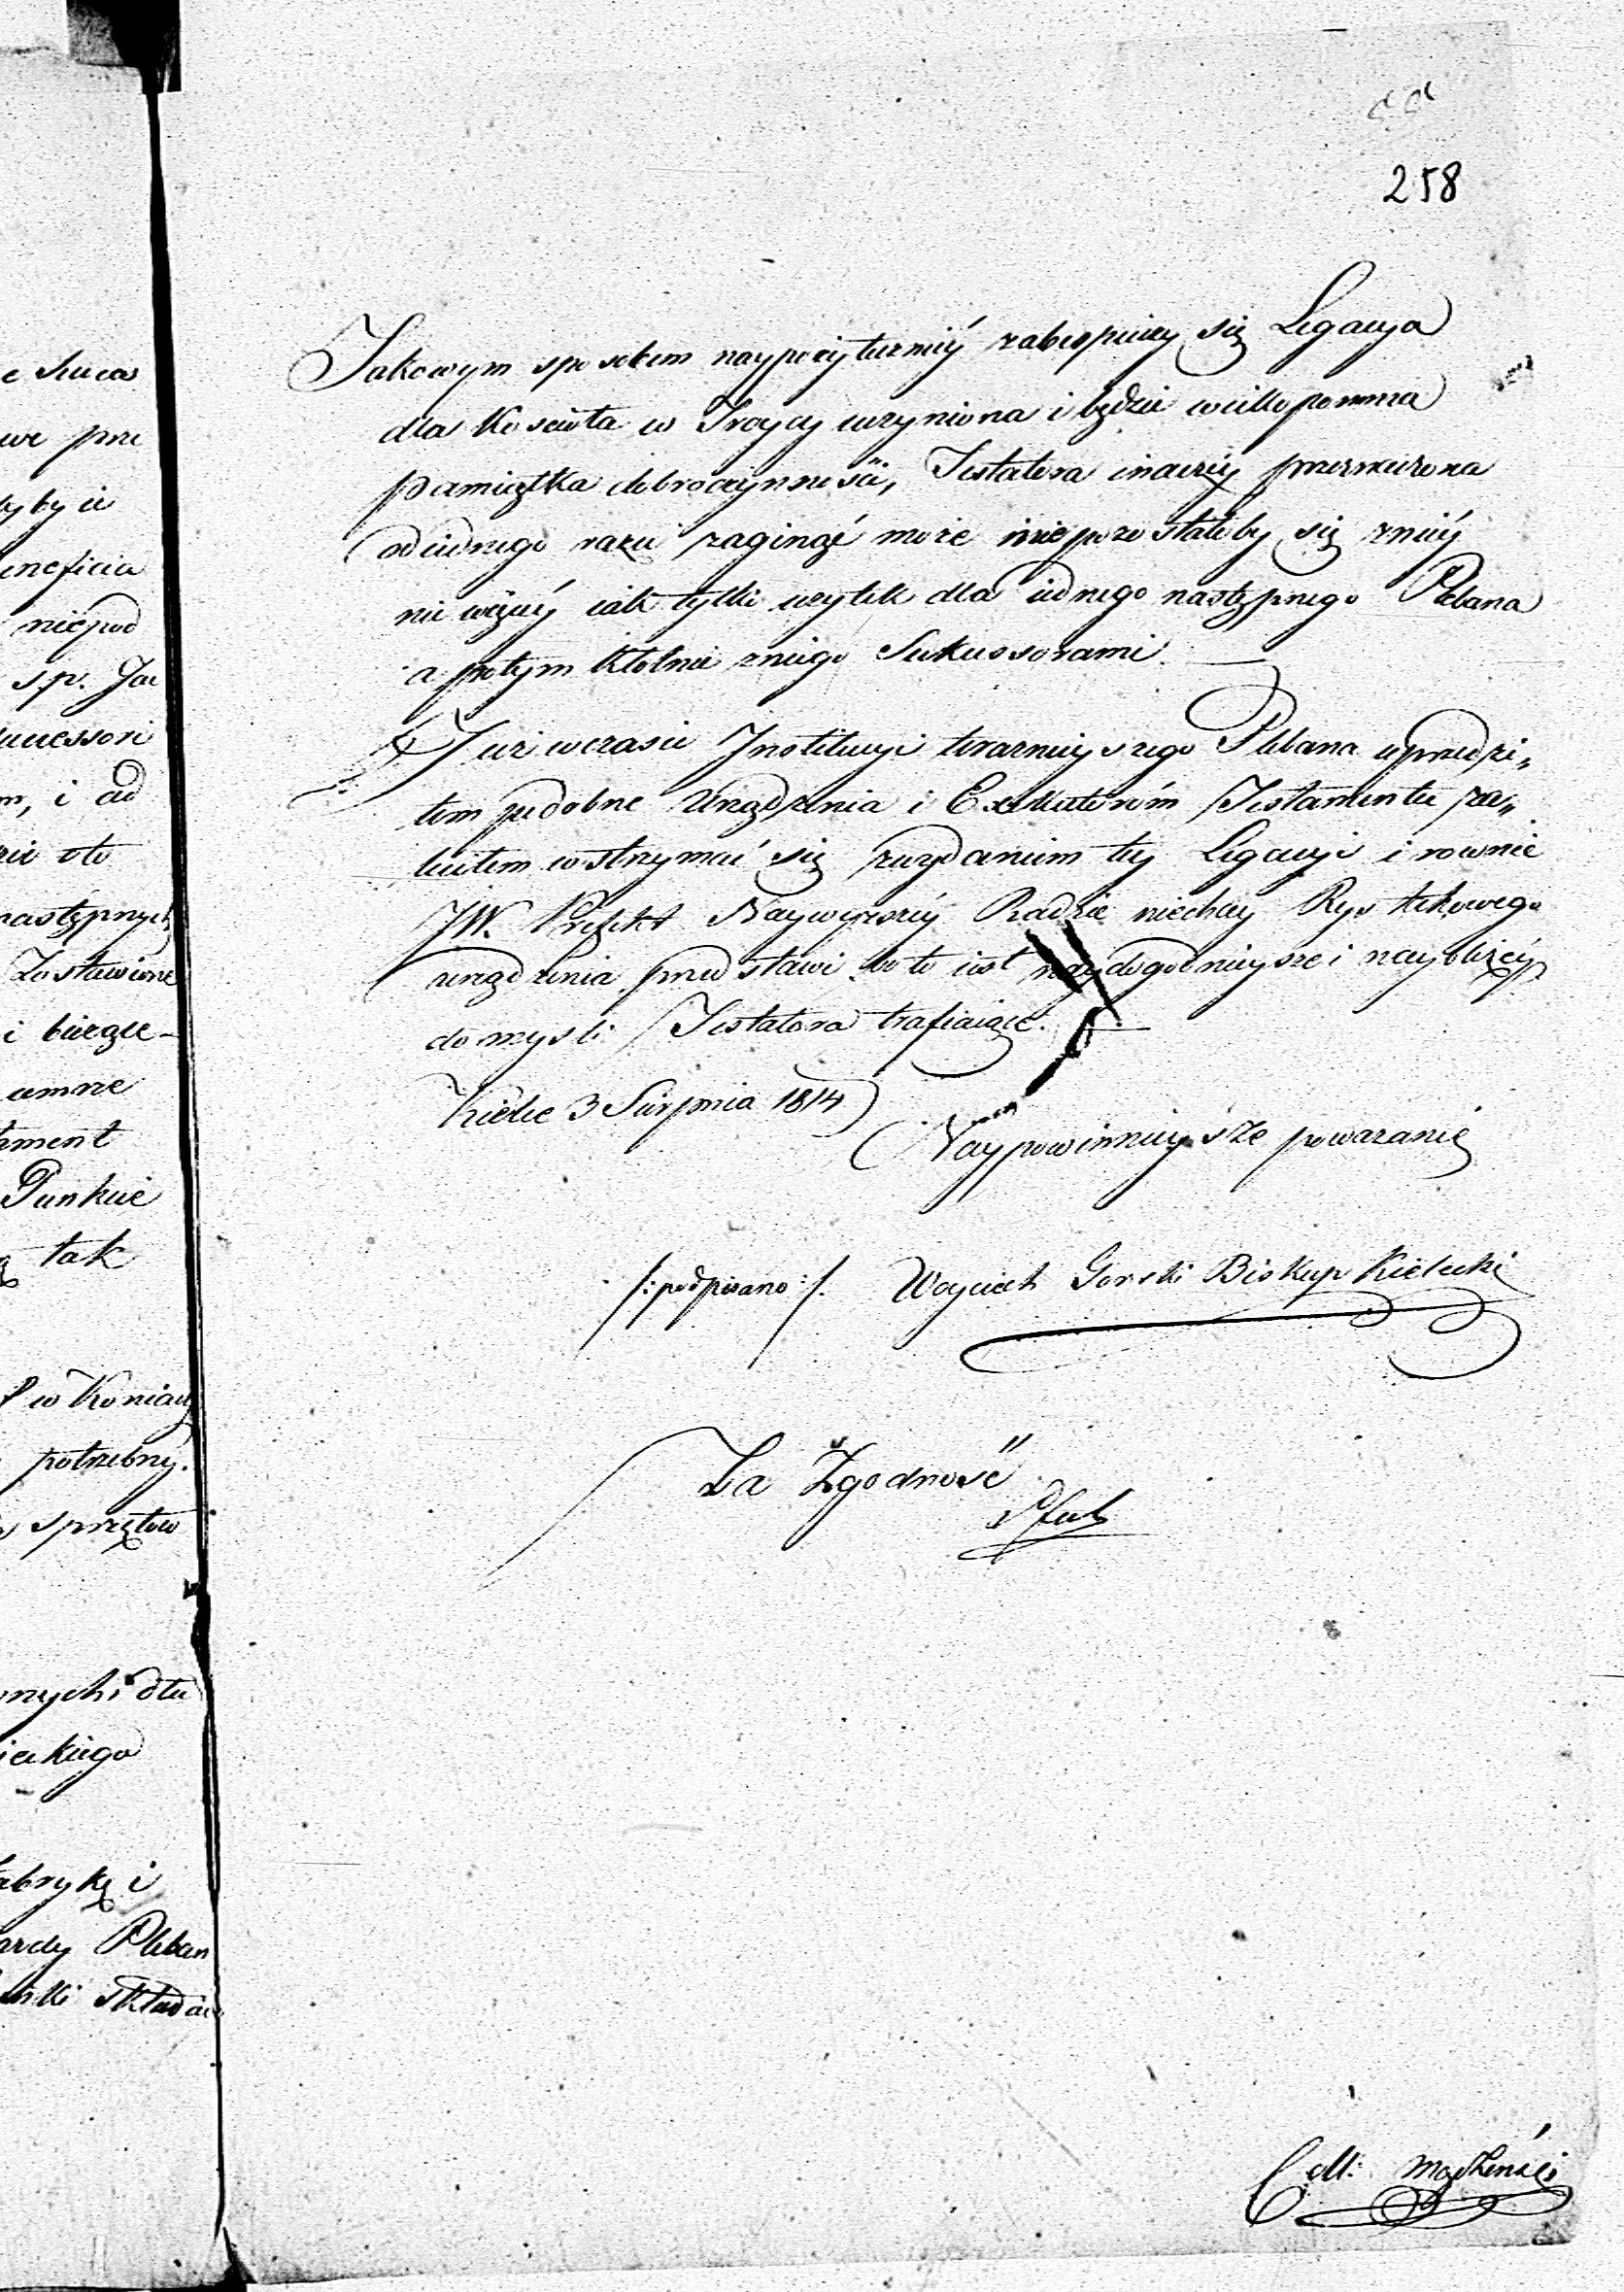 258
Jakowym sposobem naypożyteczniéy zabespieczy się Legacya
dla Kościoła w Tróycy uczyniona i będzie wiellkopomna
pamiątka dobroczynności, Testatora inaczéy przerzucona
od iednego razu zaginąć może i niepozostałoby się zniéy
nic więcéy iak tylko użytek dla iednego następnego Plebana
a potym kłotnie zniego Sukcessorami.
Już wczasie Instytucyi terazniejszego Plebana uprzedzi„
łem podobne Urządzenia i Exekutoróm Testamentu za„
leciłem wstrzymać się zwydaniem téy Legacyi i rownie
JW. Prefekt Naywyższéy Radzie niechay Rys takowego
urządzenia przedstawi bo to iest naydogodnieysze i naybliżéy
do mysli Testatora trafiaiące.
Kielce 3 Sierpnia 1814
Naypowinnieysze poważanie
/:podpisano:/ Woyciech Gorski Biskup Kielecki
Za Zgodność
Coll:
e Succes
we prze
yby ie
eneficia
niepod
s.p. Jac
uccessori
m, i ad
oto
następnych
zostawione
i bierzące
umrze
tament
Punkcie
tak
w Koniecz
potrzebny.
sprzętow
nych i dla
ieckiego
abrykę i
ardy Pleban
składać